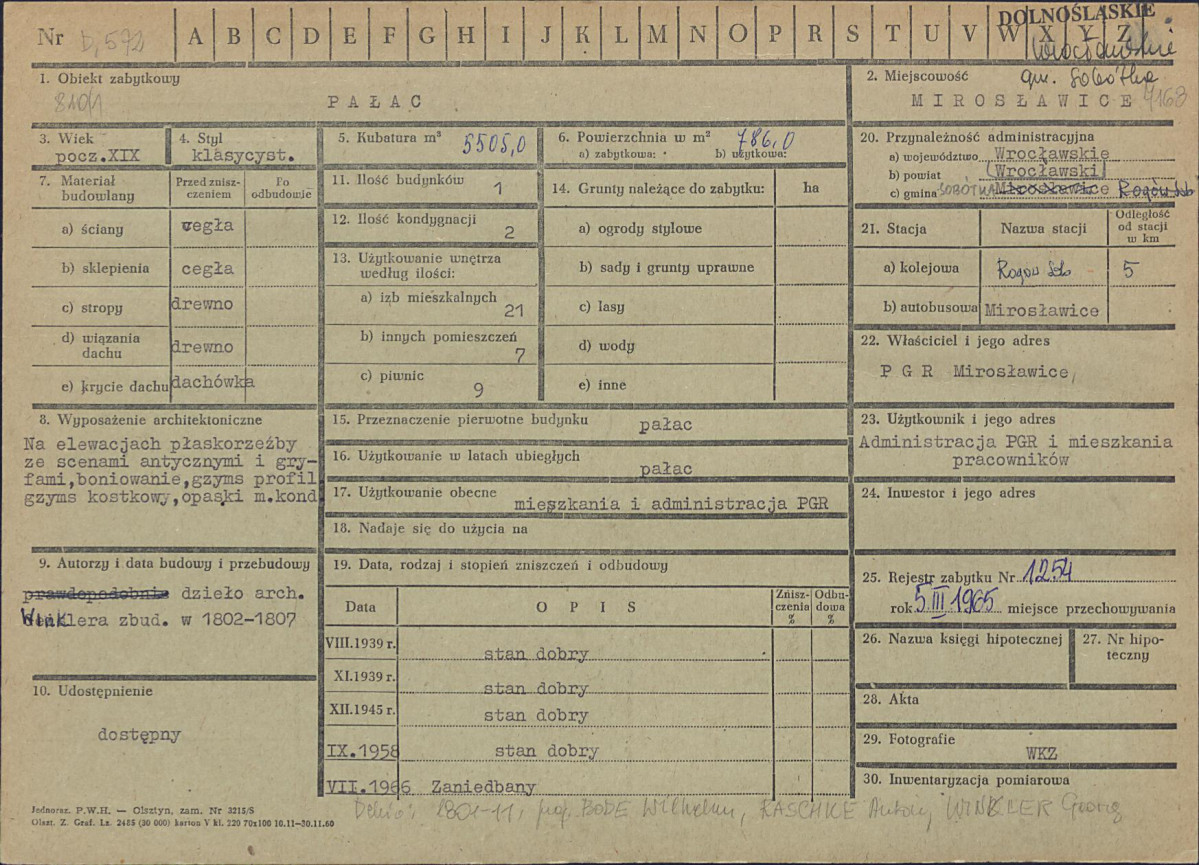 Nr D, 572 A B C D E F G H I J K L M N O P R S T U V W X Y Z
DOLNOŚLĄSKIE
wrocławskie
gm. Sobótka
1. Obiekt zabytkowy
810/1
PAŁAC
2. Miejscowość
MIROSŁAWICE 4163
3. Wiek
pocz.XIX
4. Styl
klasycyst.
5. Kubatura m³ 5505,0
6. Powierzchnia w m² 786,0
a) zabytkowa: b) użytkowa:
7. Materiał budowlany
Przed znisz-
czeniem
Po
odbudowie
a) ściany cegła
b) sklepienia cegła
c) stropy drewno
d) wiązania
dachu drewno
e) krycie dachu dachówka
11. Ilość budynków 1
12. Ilość kondygnacji
2
13. Użytkowanie wnętrza
według ilości:
a) izb mieszkalnych
21
b) innych pomieszczeń
7
c) piwnic
9
14. Grunty należące do zabytku: ha
a) ogrody stylowe
b) sady i grunty uprawne
c) lasy
d) wody
e) inne
20. Przynależność administracyjna
a) województwo Wrocławskie
b) powiat Wrocławski
c) gmina SOBÓTKA Mirosławice Rogów Sob
21. Stacja Nazwa stacji
Odległość
od stacji
w km
a) kolejowa Rogów Sob 5
b) autobusowa Mirosławice
22. Właściciel i jego adres
PGR Mirosławice,
8. Wyposażenie architektoniczne
Na elewacjach płaskorzeźby
ze scenami antycznymi i gry-
fami,boniowanie,gzyms profil
gzyms kostkowy,opaski m.kond
15. Przeznaczenie pierwotne budynku pałac
16. Użytkowanie w latach ubiegłych
pałac
17. Użytkowanie obecne
mieszkania i administracja PGR
18. Nadaje się do użycia na
23. Użytkownik i jego adres
Administracja PGR i mieszkania
pracowników
24. Inwestor i jego adres
9. Autorzy i data budowy i przebudowy
prawdopodobnie dzieło arch.
Winklera zbud. w 1802-1807
10. Udostępnienie
dostępny
19. Data, rodzaj i stopień zniszczeń i odbudowy
Data OPIS
Znisz-
czenia
%
Odbu-
dowa
%
VIII.1939 r. stan dobry
XI.1939 r. stan dobry
XII.1945 r. stan dobry
IX.1958 stan dobry
VII.1966 Zaniedbany
25. Rejestr zabytku Nr 1254
rok 5 III 1965 miejsce przechowywania
26. Nazwa księgi hipotecznej
27. Nr hipo-
teczny
28. Akta
29. Fotografie
WKZ
30. Inwentaryzacja pomiarowa
Jednoraz. P.W.H. — Olsztyn, zam. Nr 3215/S
Olszt. Z. Graf. Lz. 2485 (30 000) karton V kl. 220 70x100 10.11-30.11.60
Dehio: 1801-11, proj. BODE Wilhelm, RASCHKE Antoni, WINKLER Georg